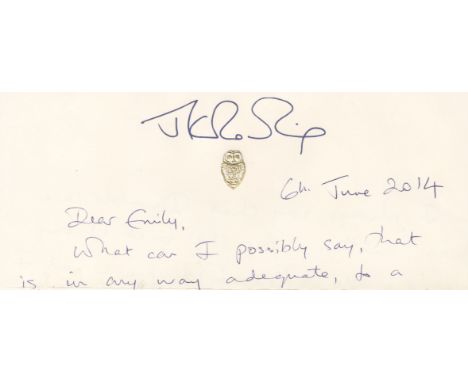 6th June 2014
Dear Emily,
What can I possibly say, that
is in any way adequate, to a